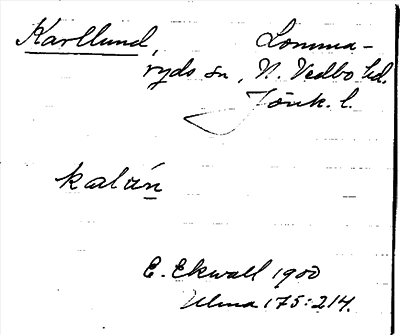 Karllund, Lomma-
ryds sn, N. Vedbo hd.
Jönk. l.
kalún
E. Ekwall 1900
Ulma 175:214.